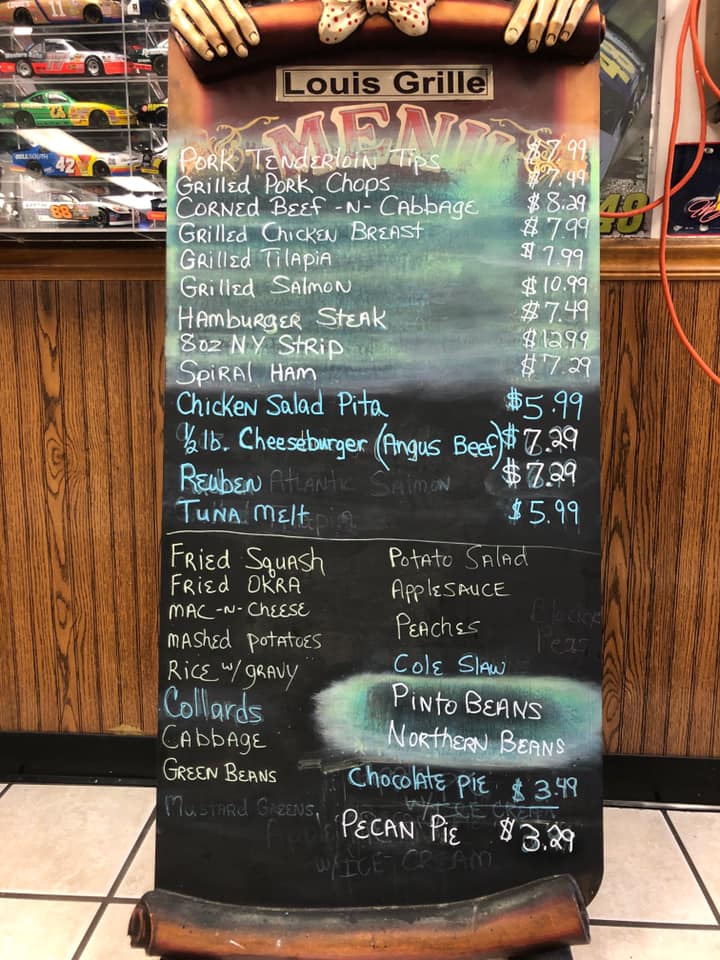 11
BELLSOUTH 42
88
Louis Grille
MENU
PORK TENDERLOIN TIPS $7.99
GRILLED PORK CHOPS $7.49
CORNED BEEF -N- CABBAGE $8.29
GRILLED CHICKEN BREAST $7.99
GRILLED TILAPIA $7.99
GRILLED SALMON $10.99
HAMBURGER STEAK $7.49
8oz NY STRIP $12.99
SPIRAL HAM $7.29
Chicken Salad Pita $5.99
1/2 lb. Cheeseburger (Angus Beef) $7.29
REUBEN $7.29
ATLANTIC SALMON
TUNA MELT $5.99
FRIED SQUASH
FRIED OKRA
MAC-N-CHEESE
MASHED POTATOES
RICE W/ GRAVY
Collards
CABBAGE
GREEN BEANS
MUSTARD GREENS
POTATO SALAD
APPLESAUCE
PEACHES
COLE SLAW
PINTO BEANS
NORTHERN BEANS
CHOCOLATE PIE $3.49
W/ICE CREAM
PECAN PIE $3.29
W/ICE CREAM